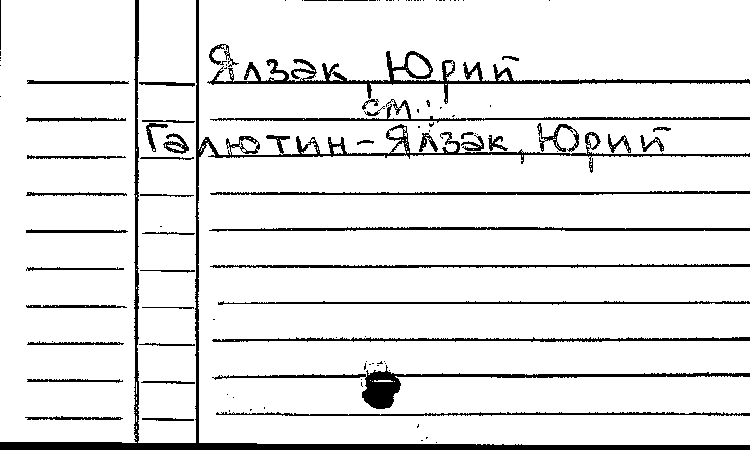 Ялзак, Юрий
см.:
Галютин-Ялзак, Юрий